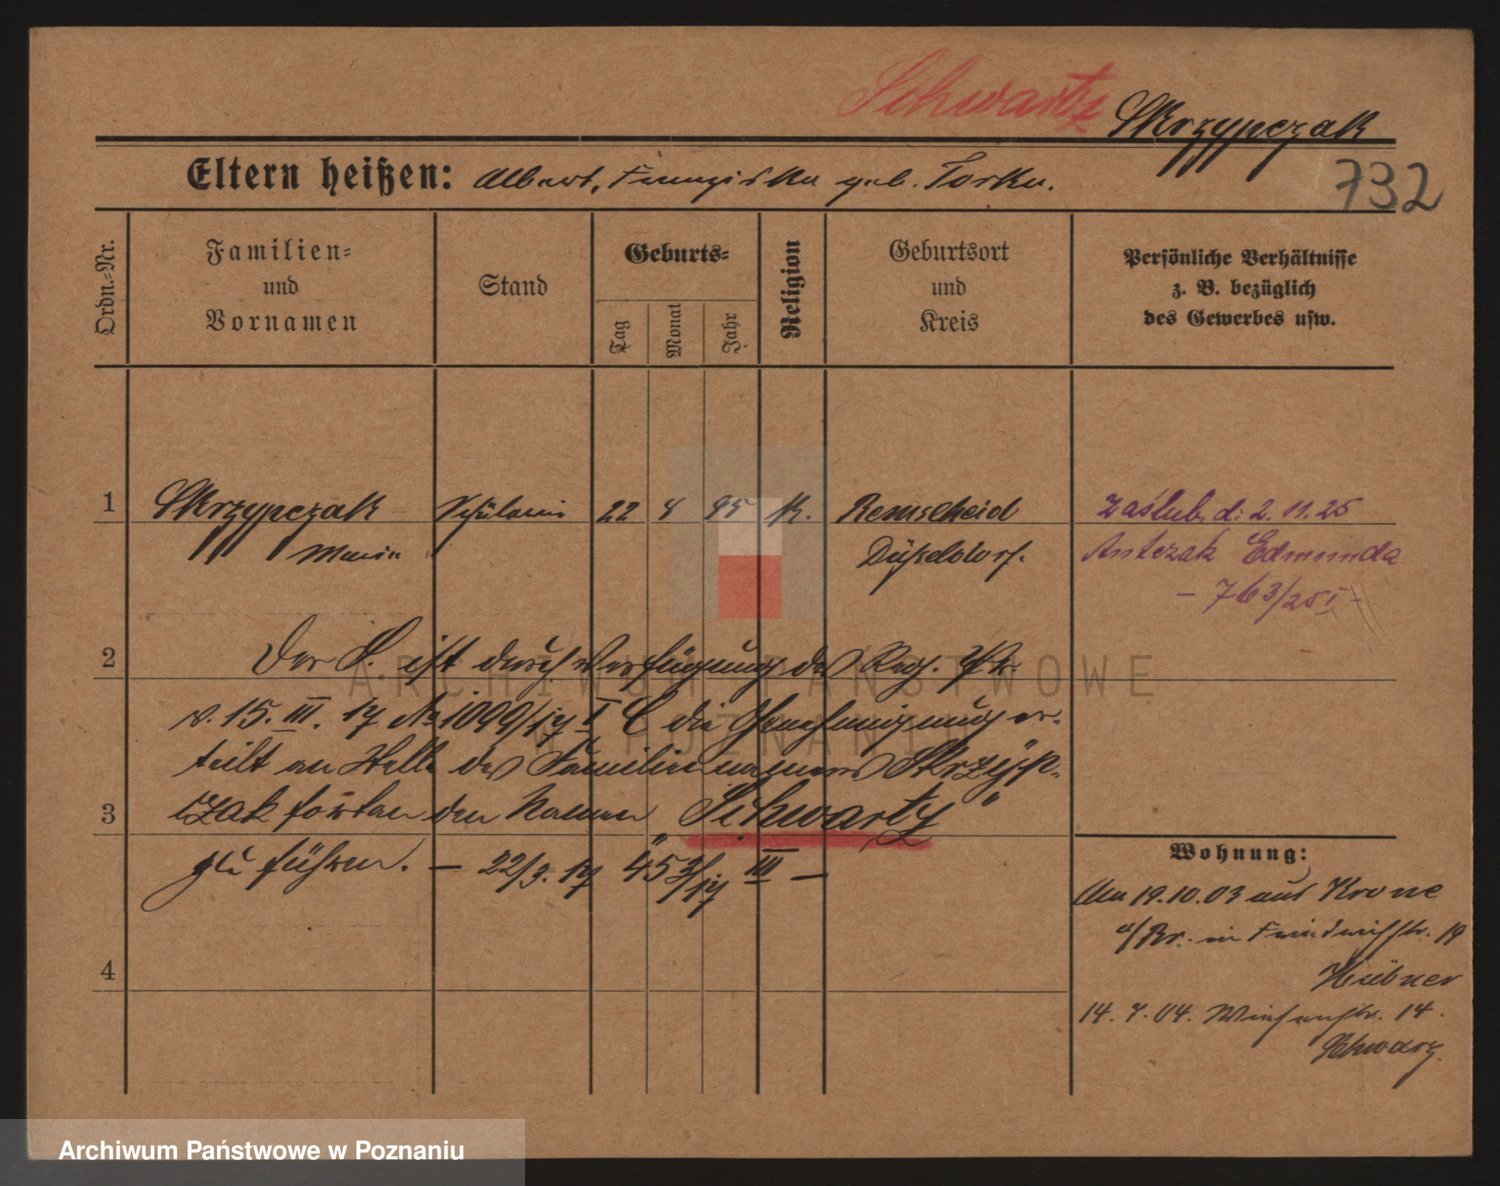 Schwartz Skrzypczak
Eltern heißen: Albert, Franziska geb. Torka.
732
Ordn.-Nr.
Familien-
und
Vornamen
Stand
Geburts-
Tag
Monat
Jahr
Religion
Geburtsort
und
Kreis
Persönliche Verhältnisse
z. B. bezüglich
des Gewerbes usw.
1 Skrzypczak Schülerin 22 8 95 K. Remscheid zaślub. d: 2. 11. 25
Maria Düßeldorf. Antczak Edmunda
- 763/25 I -
2
Der S. ist durch Verfügung des Reg. Pr.
v. 15. III. 17 № 1099/17 I C die Genehmigung er-
teilt an Stelle des Familiennamens Skrzyp-
czak fortan den Namen „Schwartz"
3
zu führen. — 22/3. 17 453/17 III —
4
Wohnung:
Am 19.10.03 aus Krone
a/Br. in Friedrichstr. 19
Hübner
14. 7. 04. Wiesenstr. 14.
Schwarz.
ARCHIWUM PAŃSTWOWE
W POZNANIU
Archiwum Państwowe w Poznaniu